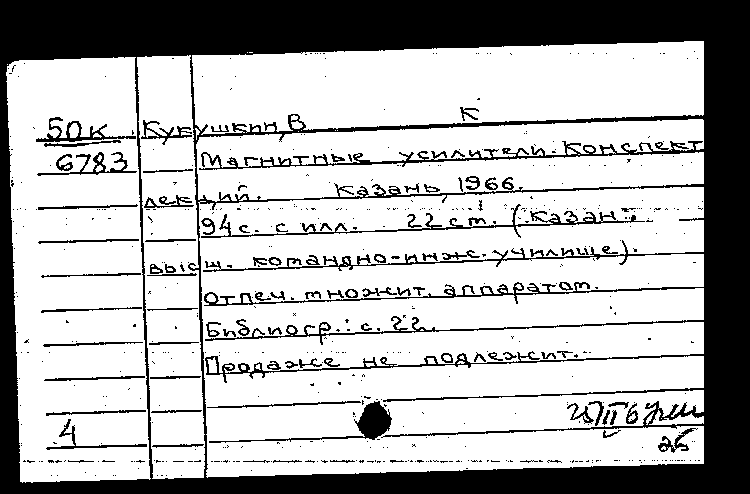 К
50к Кукушкин, В
6783 Магнитные усилители. Конспект
лекций. Казань, 1966.
94с. с илл. 22 см. (Казан.
высш. командно-инж. училище).
Отпеч. множит. аппаратом.
Библиогр.: с. 22.
Продаже не подлежит.
4
25